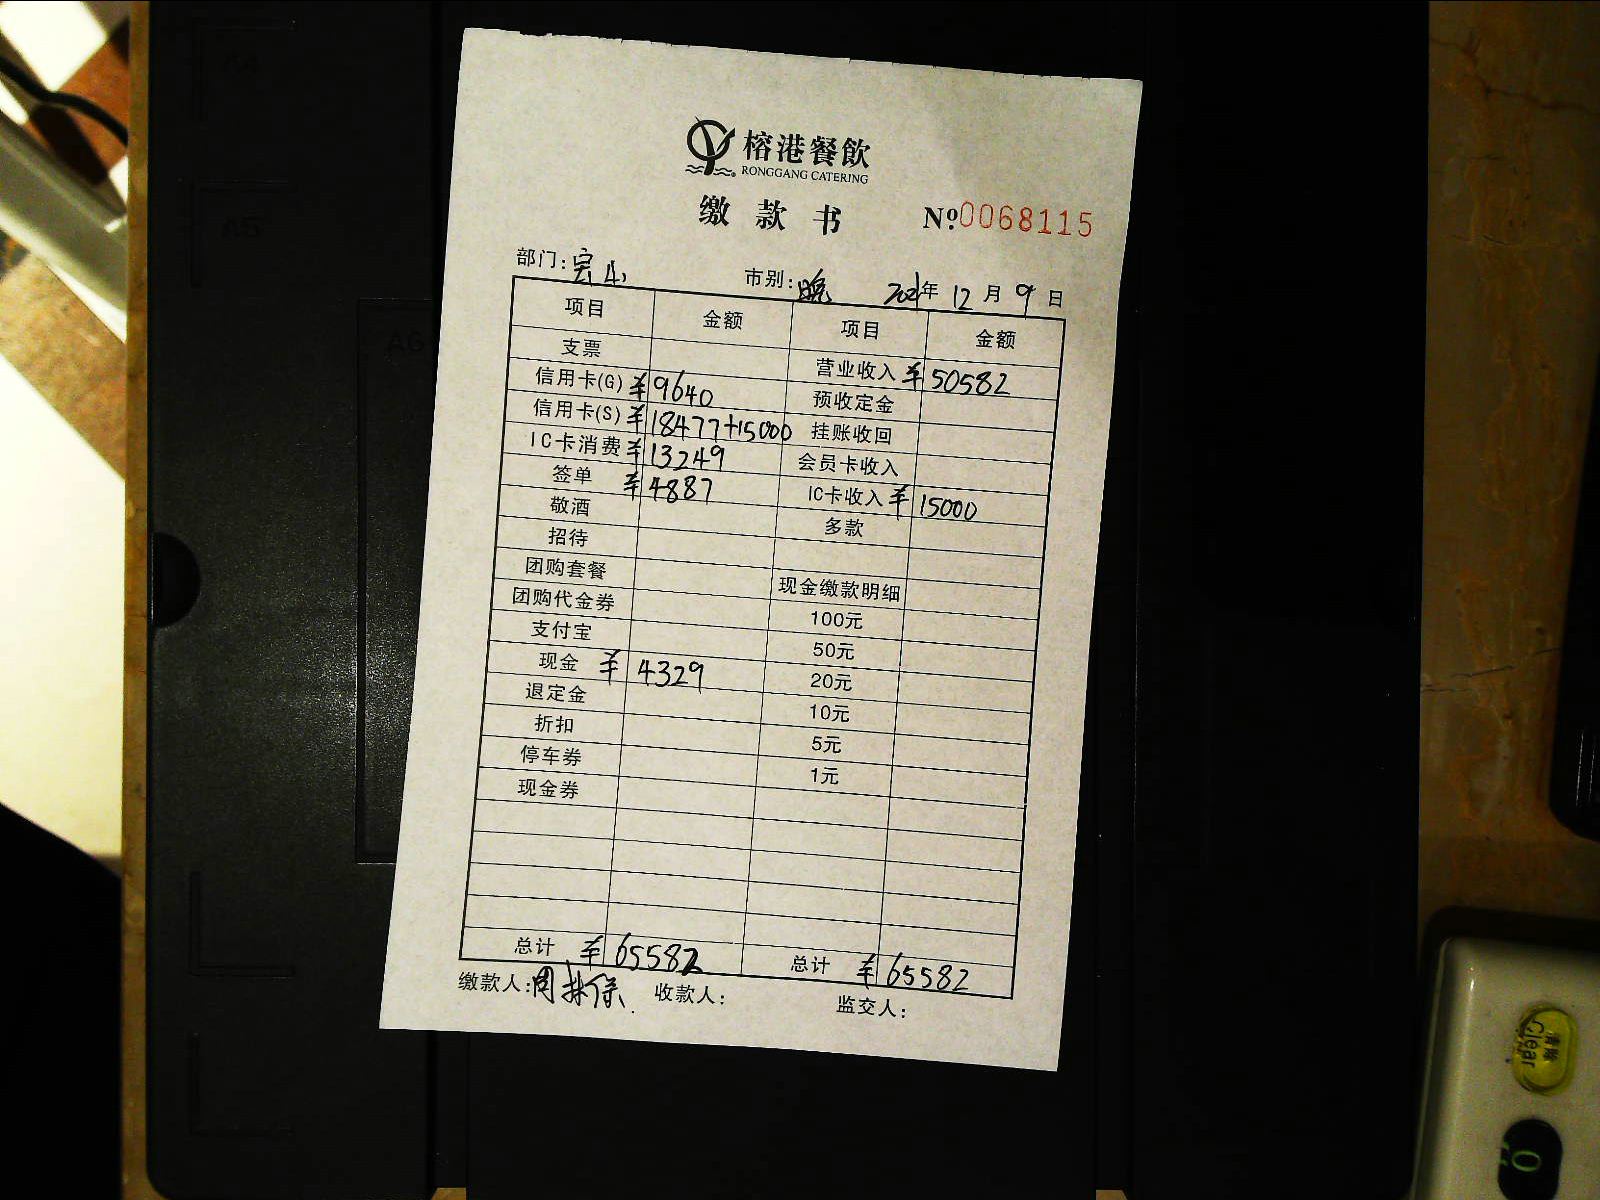 榕港餐飲
RONGGANG CATERING
缴款书 №0068115
部门: 市别:晚 2021年12月9日
项目 金额 项目 金额
支票 营业收入 ¥50582
信用卡(G) ¥9640 预收定金
信用卡(S) ¥18477+15000 挂账收回
IC卡消费 ¥13249 会员卡收入
签单 ¥4887 IC卡收入 ¥15000
敬酒 多款
招待
团购套餐 现金缴款明细
团购代金券 100元
支付宝 50元
现金 ¥4329 20元
退定金 10元
折扣 5元
停车券 1元
现金券
总计 ¥65582 总计 ¥65582
缴款人:周林保 收款人: 监交人:
A4
A5
A6
清除
Clear
0